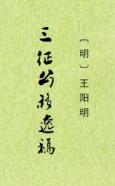 三征公移逸稿
〔明〕王阳明